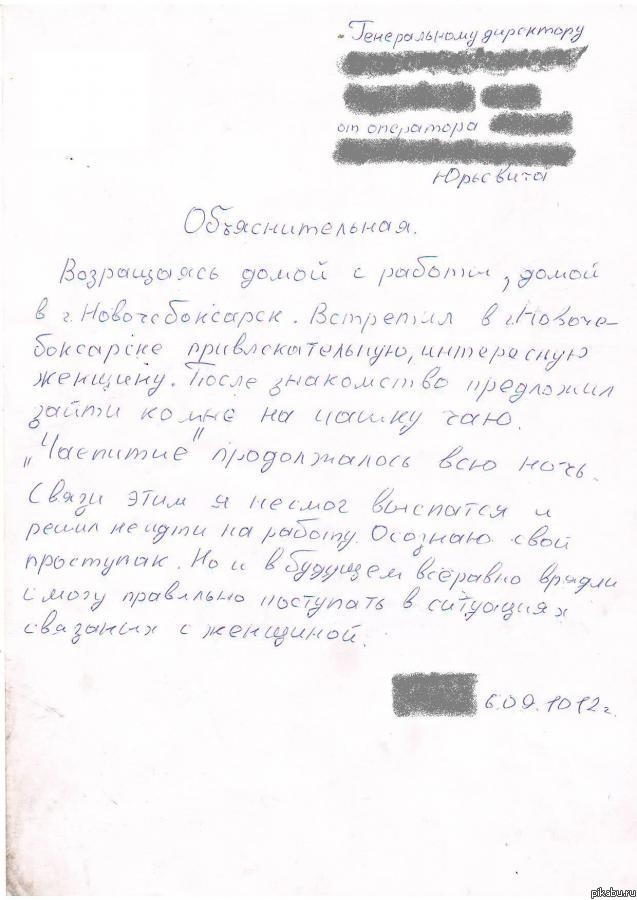 Генеральному директору
от оператора
Юрьевича
Объяснительная.
Возращаясь домой с работы, домой
в г. Новочебоксарск. Встретил в г. Новоче-
боксарске привлекательную, интересную
женщину. После знакомство предложил
зайти ко мне на чашку чаю.
"Чаепитие" продолжалось всю ночь.
Связи этим я несмог выспатся и
решил не идти на работу. Осознаю свой
проступак. Но и в будущем всёравно врядли
смогу правильно поступать в ситуациях
связаных с женщиной.
6.09.1012г.
pikabu.ru